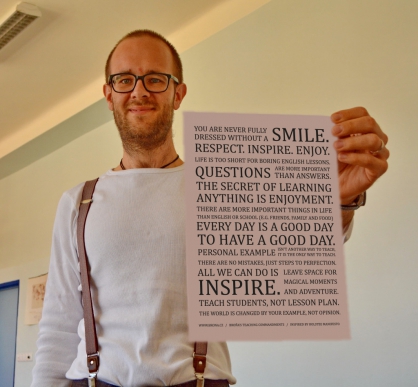 YOU ARE NEVER FULLY
DRESSED WITHOUT A SMILE.
RESPECT. INSPIRE. ENJOY.
LIFE IS TOO SHORT FOR BORING ENGLISH LESSONS.
QUESTIONS ARE MORE IMPORTANT
THAN ANSWERS.
THE SECRET OF LEARNING
ANYTHING IS ENJOYMENT.
THERE ARE MORE IMPORTANT THINGS IN LIFE
THAN ENGLISH OR SCHOOL (E.G. FRIENDS, FAMILY AND FOOD)
EVERY DAY IS A GOOD DAY
TO HAVE A GOOD DAY.
PERSONAL EXAMPLE ISN'T ANOTHER WAY TO TEACH,
IT IS THE ONLY WAY TO TEACH.
THERE ARE NO MISTAKES, JUST STEPS TO PERFECTION.
ALL WE CAN DO IS
INSPIRE.
LEAVE SPACE FOR
MAGICAL MOMENTS
AND ADVENTURE.
TEACH STUDENTS, NOT LESSON PLAN.
THE WORLD IS CHANGED BY YOUR EXAMPLE, NOT OPINION.
TEACHING COMMANDMENTS